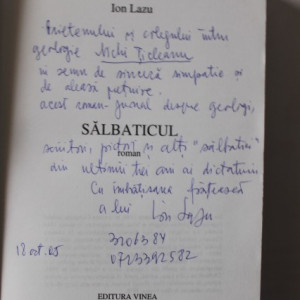 Ion Lazu
Prietenului și colegului întru
geologie Nichi Țicleanu
în semn de sinceră simpatie și
de aleasă prețuire,
acest roman-jurnal despre geologi,
SĂLBATICUL
roman
scriitori, pictori și alți "sălbatici"
din ultimii trei ani ai dictaturii
Cu îmbrățișarea frățească
a lui Ion Lazu
3206384
18 oct. 05
0723392582
EDITURA VINEA